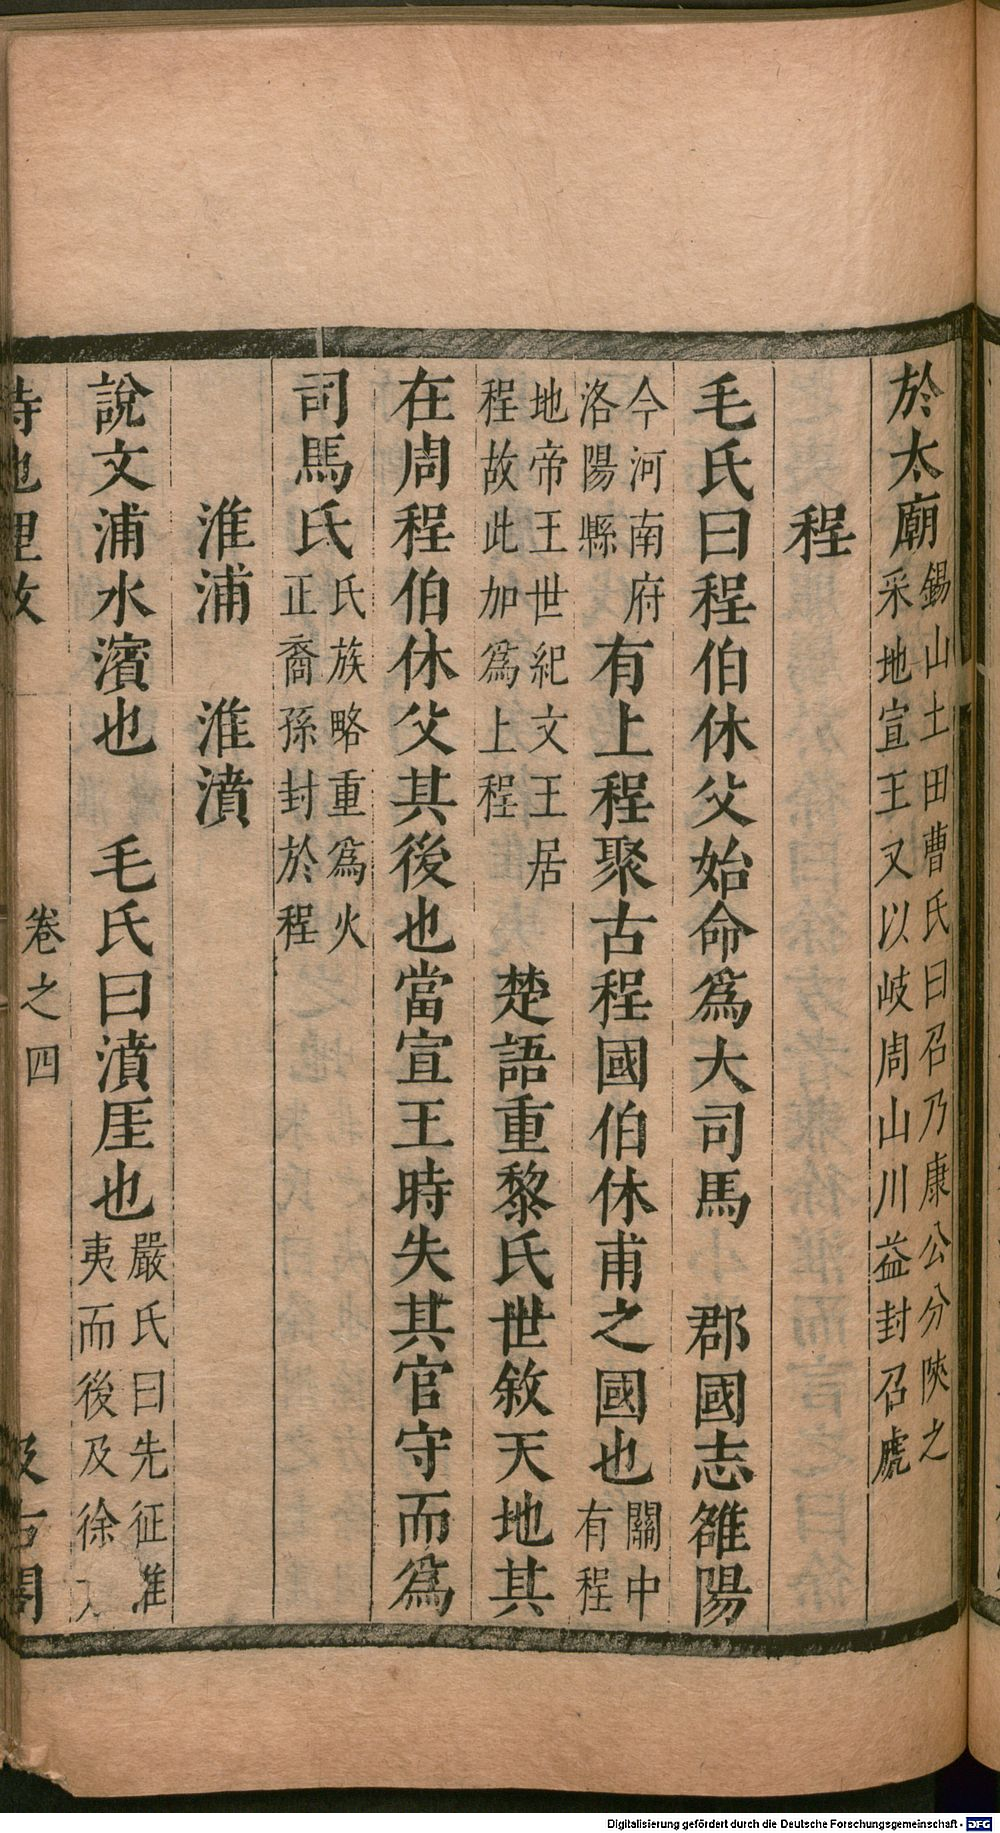 於太廟錫山土田曹氏曰召乃康公分陝之采地宣王又以岐周山川益封召虎
程
毛氏曰程伯休父始命為大司馬　郡國志雒陽
今河南府洛陽縣有上程聚古程國伯休甫之國也關中有程
地帝王世紀文王居程故此加為上程　楚語重黎氏世敘天地其
在周程伯休父其後也當宣王時失其官守而為
司馬氏氏族略重為火正裔孫封於程
淮浦　淮濆
說文浦水濱也　毛氏曰濆厓也嚴氏曰先征淮夷而後及徐
詩地理攷　卷之四　汲古閣
Digitalisierung gefördert durch die Deutsche Forschungsgemeinschaft - DFG